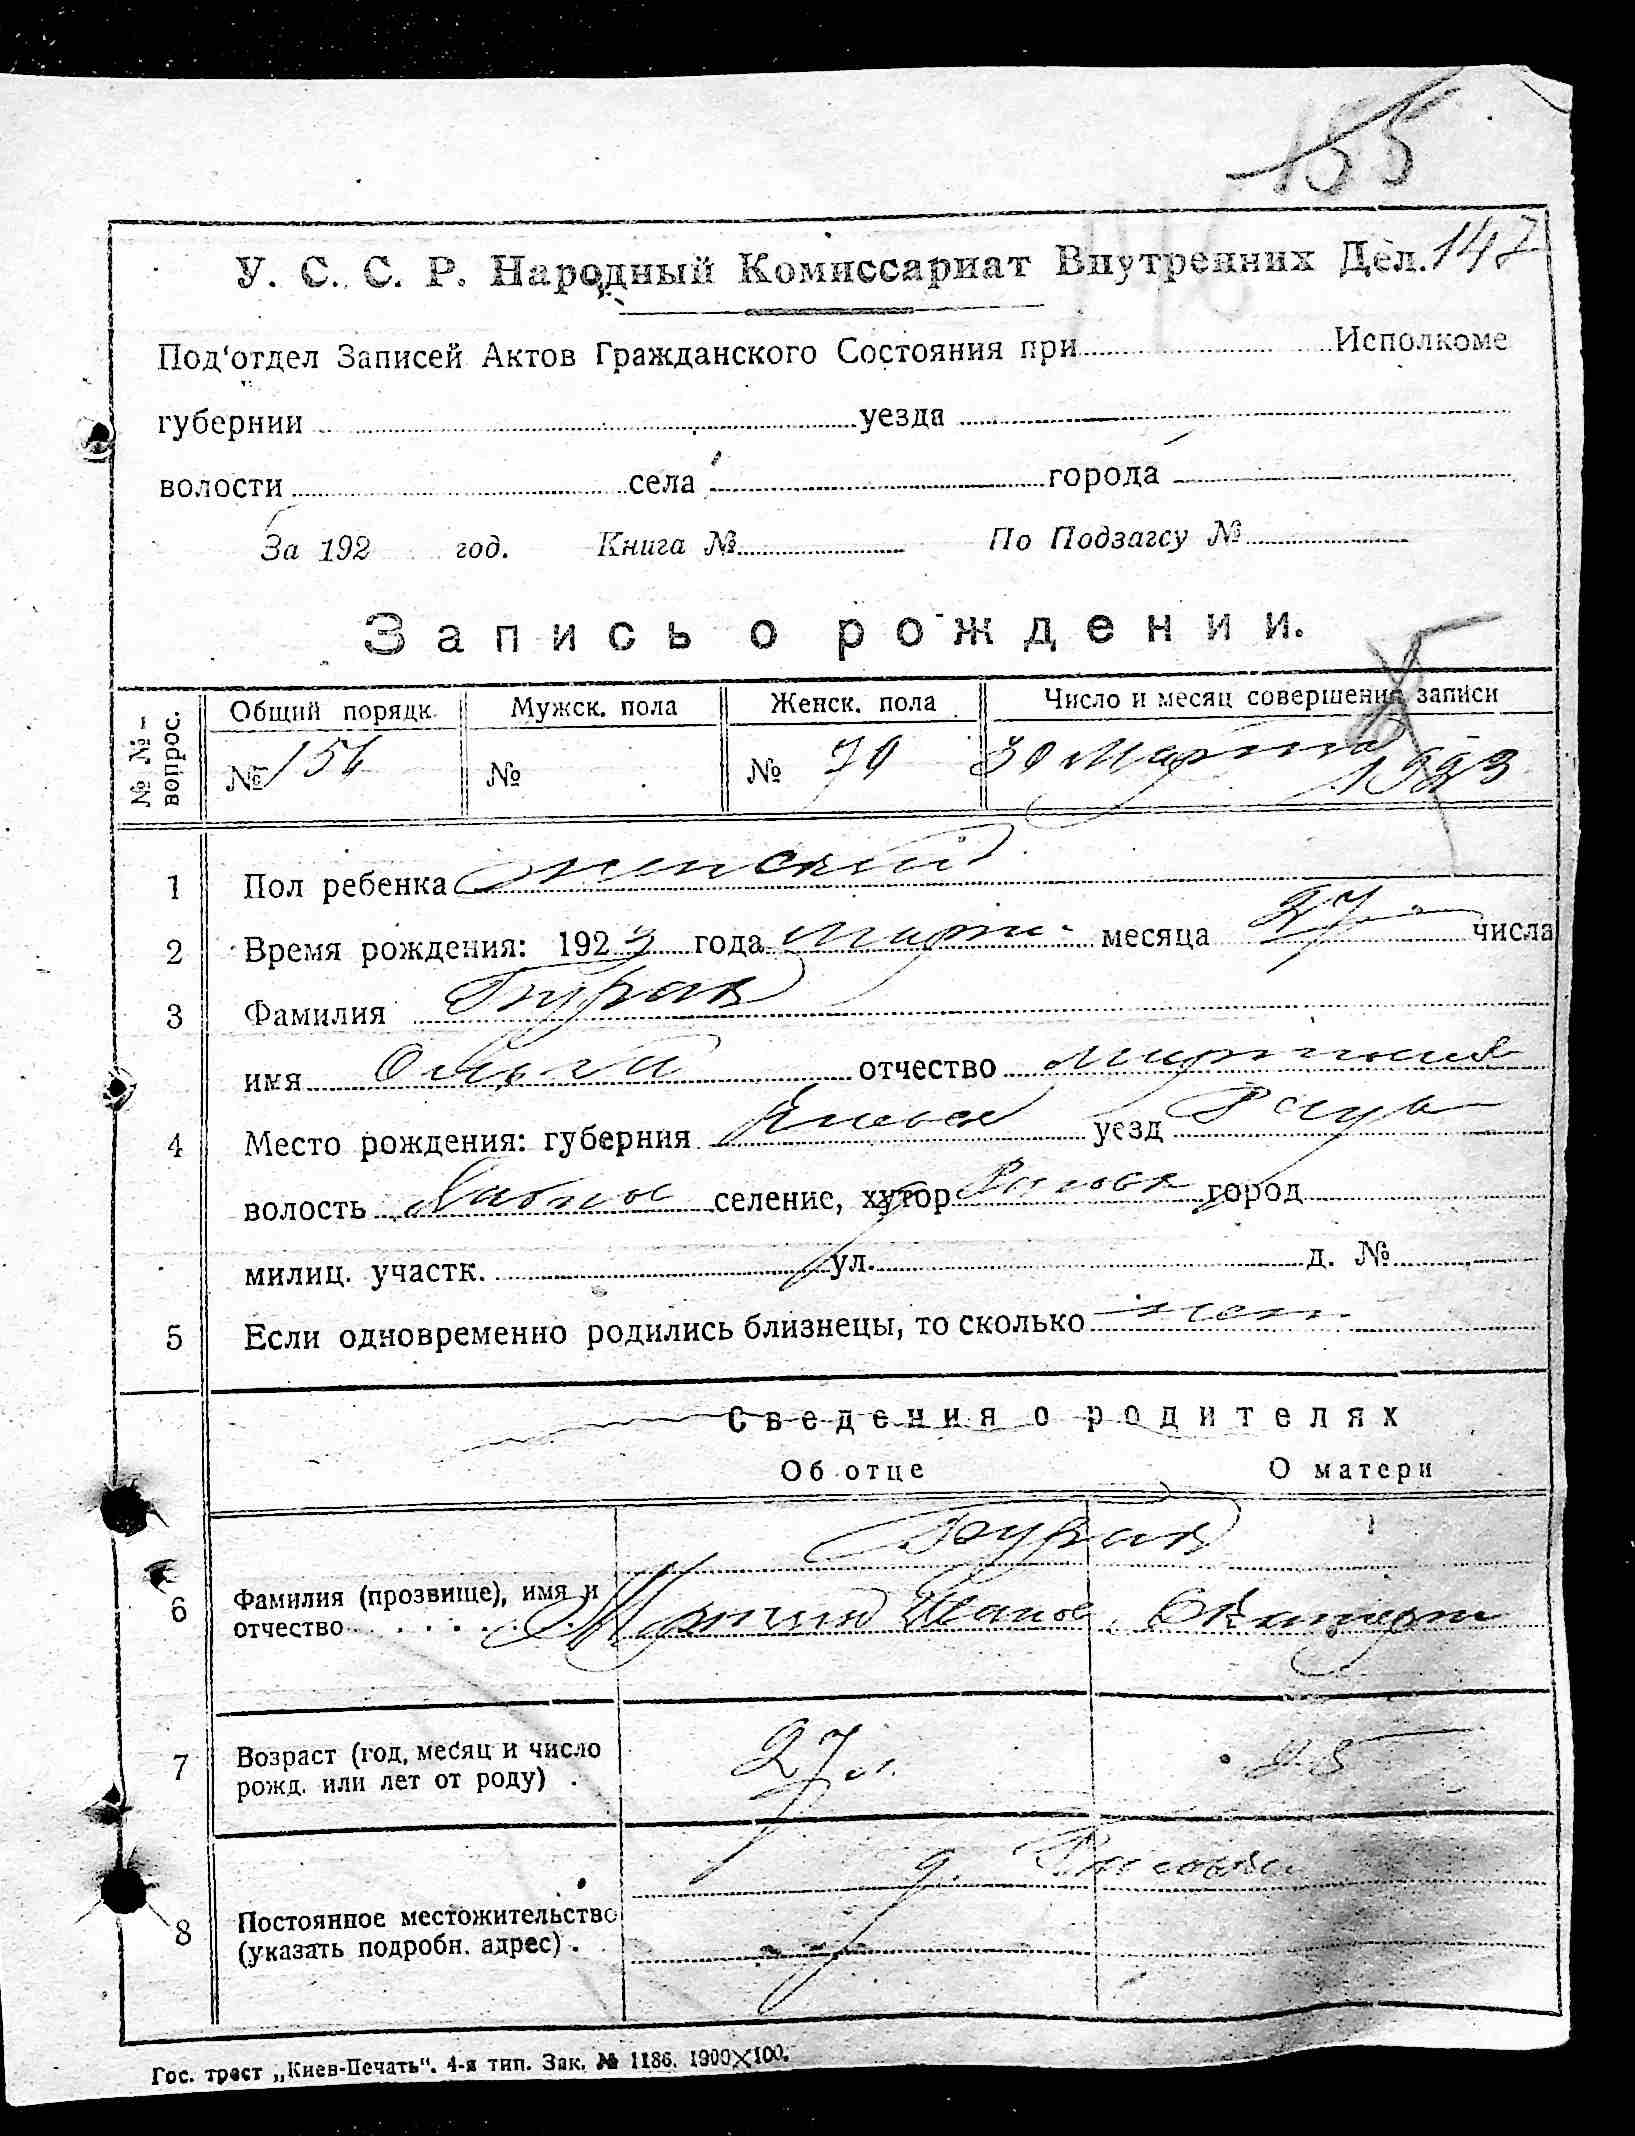 155
147
У. С. С. Р. Народный Комиссариат Внутренних Дел.
Под'отдел Записей Актов Гражданского Состояния при Исполкоме
губернии уезда
волости села города
За 192 год. Книга № По Подзагсу №
Запись о рождении.
№ № вопрос. Общий порядк. Мужск. пола Женск. пола Число и месяц совершения записи
№ 156 № № 79 30 Марта
1923
1 Пол ребенка женский
2 Время рождения: 1923 года Март месяца 27 числа
3 Фамилия
имя Ольга отчество
4 Место рождения: губерния Киевск уезд
волость селение, хутор город
милиц. участк. ул. д. №
5 Если одновременно родились близнецы, то сколько нет
Сведения о родителях
Об отце О матери
6 Фамилия (прозвище), имя и
отчество
7 Возраст (год, месяц и число
рожд. или лет от роду) . 27 л. 25
8 Постоянное местожительство
(указать подробн. адрес) .
Гос. трест „Киев-Печать“. 4-я тип. Зак. № 1186. 1900×100.